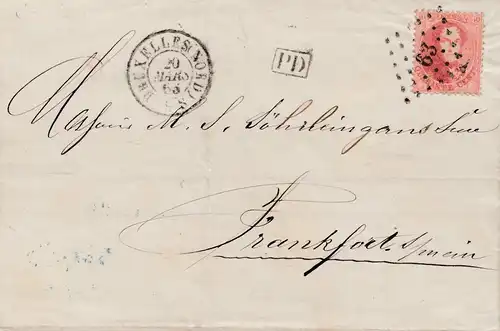 BRUXELLES (NORD)
20
MARS
63
PD
63
Messieurs M. S. Söhrleingans Seue
Frankfort s/mein